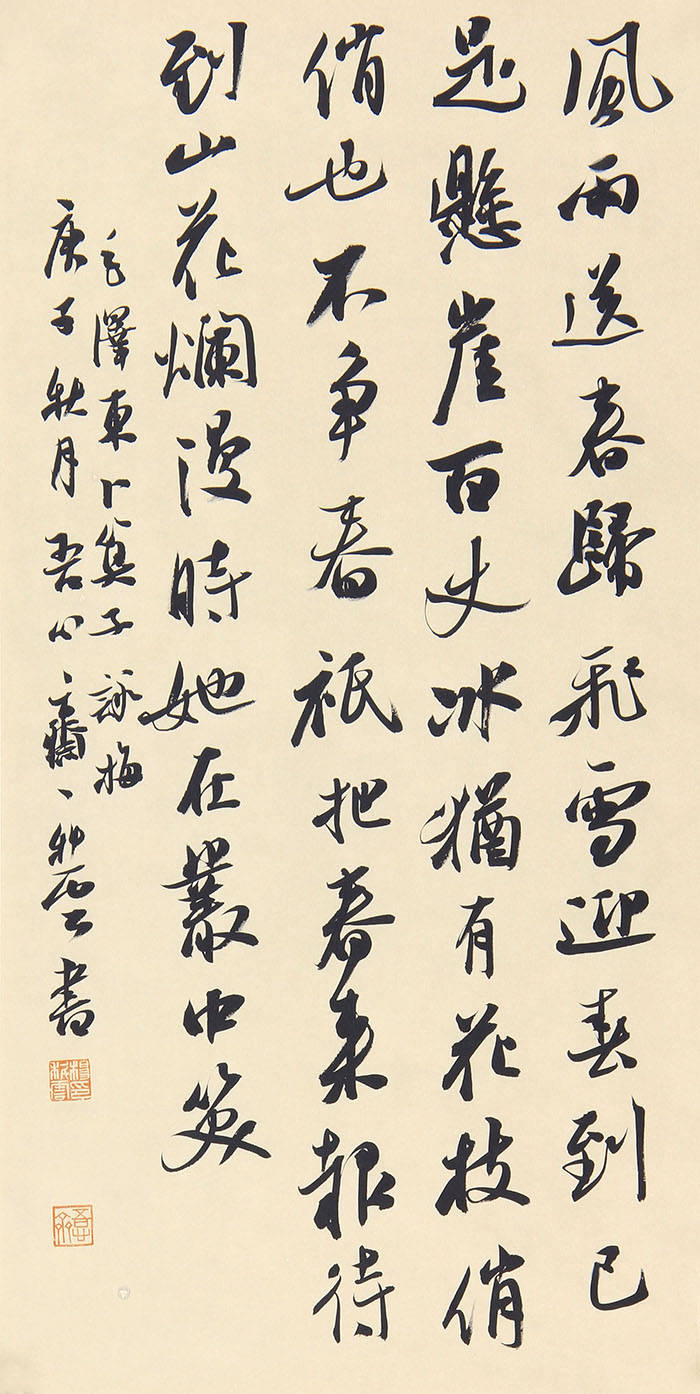 風雨送春歸飛雪迎春到已
是懸崖百丈冰猶有花枝俏
俏也不争春祇把春來報待
到山花爛漫時她在叢中笑
毛澤東卜算子詠梅
庚子秋月吾心齋書